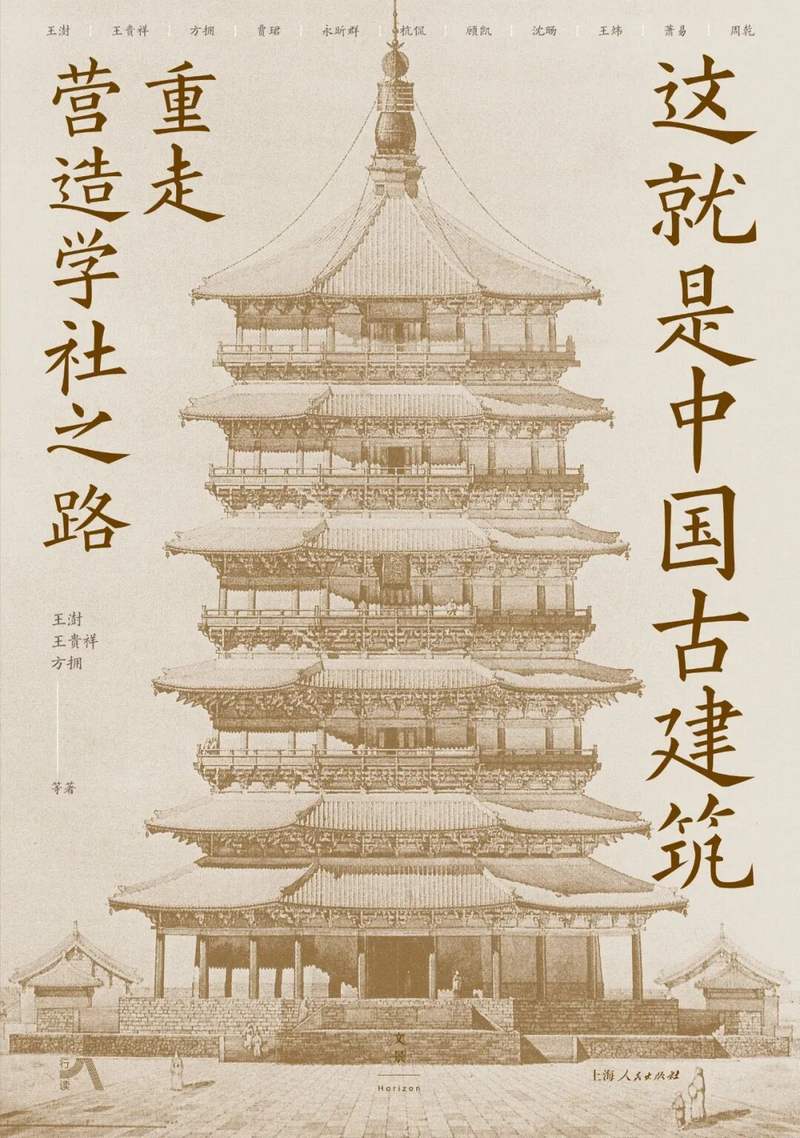 王澍 王贵祥 方拥 贾珺 永昕群 杭侃 顾凯 沈旸 王炜 萧易 周乾
这就是中国古建筑
重走
营造学社之路
王澍
王贵祥
方拥
等著
文景
Horizon
行读
上海人民出版社